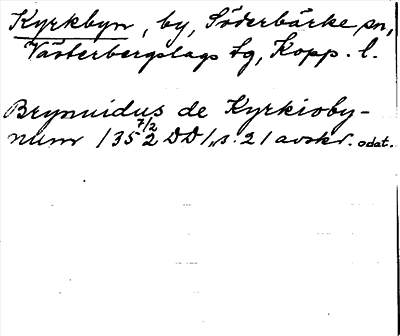 Kyrkbyn, by, Söderbärke sn,
Västerbergslags tg, Kopp. l.
Brynuidus de Kyrkioby-
num 1352 7/2 DD 1, s. 21 avskr. odat.